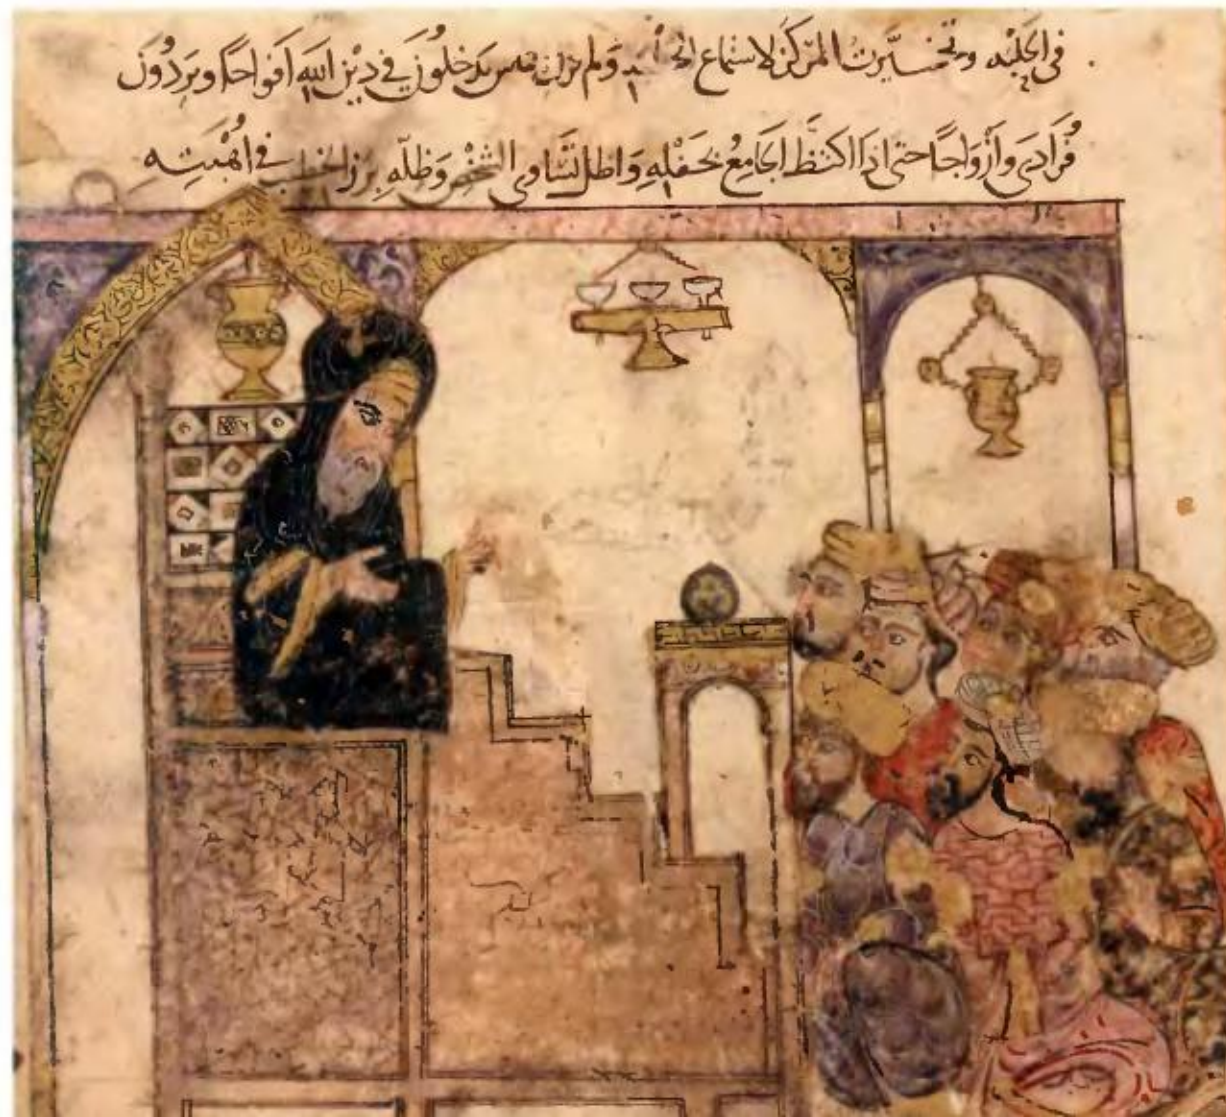 في الحلبه وتخيّرت المركز لاستماع ولم يدخلون في دين الله افواجا ويردون
فُرادى وأزواجا حتى اذا اكتظّ الجامعُ بحفلِهِ واظل تساوي الشخص وظلّه برز الخطيب في أُهْبَتِه